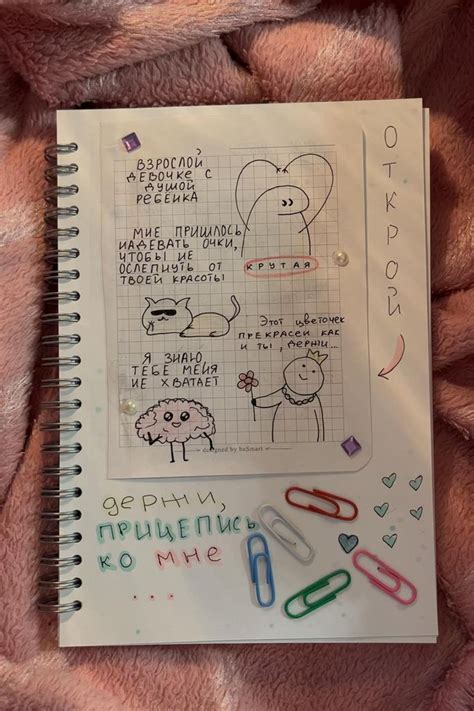 ВЗРОСЛОЙ
ДЕВОЧКЕ С
ДУШОЙ
РЕБЕНКА
КРУТАЯ
МНЕ ПРИШЛОСЬ
НАДЕВАТЬ ОЧКИ,
ЧТОБЫ НЕ
ОСЛЕПНУТЬ ОТ
ТВОЕЙ КРАСОТЫ
ЭТОТ ЦВЕТОЧЕК
ПРЕКРАСЕН КАК
И ТЫ, ДЕРЖИ...
Я ЗНАЮ
ТЕБЕ МЕНЯ
НЕ ХВАТАЕТ
designed by beSmart
ОТКРОЙ
держи,
ПРИЦЕПИСЬ
КО МНЕ
...